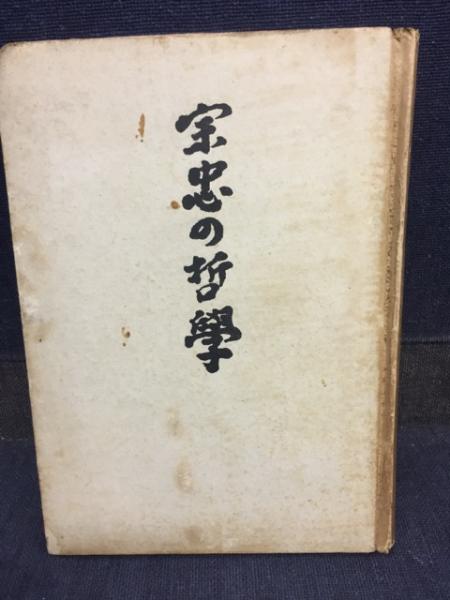 宗忠の哲學